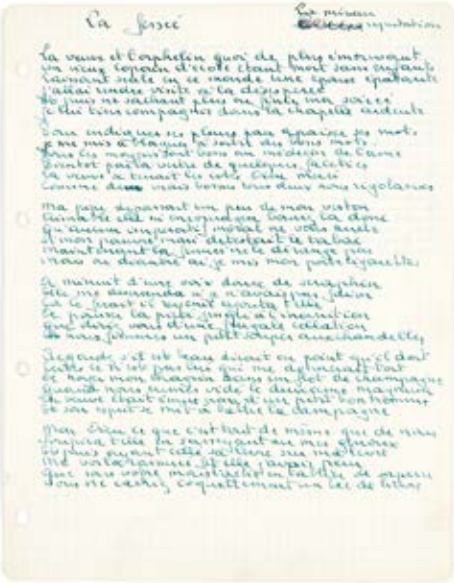 La fessée
reputation
La veuve et l'orphelin quoi de plus émouvant
Un vieux copain d'école étant mort sans enfants
Laissant seule en ce monde une épouse épatante
J'allai rendre visite à la désespérée
Et puis ne sachant plus où finir ma soirée
Je lui tins compagnie dans la chapelle ardente
Pour endiguer ses pleurs pour apaiser ses maux
Je me mis à blaguer à sortir des bons mots
Tous les moyens sont bons au médecin de l'âme
Bientôt par la vertu de quelques facéties
La veuve se tenait les côtes Dieu merci
Comme deux vrais bossus tous deux nous rigolâmes
Ma pipe dépassait un peu de mon veston
Aimable elle m'encouragea bourrez la donc
Qu'aucun impératif moral ne vous arrête
Si mon pauvre mari détestait le tabac
Maintenant la fumée ne le dérange pas
Mais où diantre ai je mis mon porte cigarettes
A minuit d'une voix douce de séraphin
Elle me demanda si je n'avais pas faim
Ça le ferait il revenir ajouta t elle
De pousser la piété jusqu'à l'inanition
Que diriez vous d'une frugale collation
Et nous fîmes un petit souper aux chandelles
Regardez s'il est beau dirait on point qu'il dort
Certes ce n'est pas lui qui me donnerait tort
De noyer mon chagrin dans un flot de champagne
Quand nous eûmes vidé le deuxième magnum
La veuve était émue nom d'un petit bonhomme
Et son esprit se mit à battre la campagne
Mon Dieu ce que c'est tout de même que de nous
Soupira t elle en s'asseyant sur mes genoux
Et puis ayant collé sa lèvre sur ma lèvre
Me voilà rassurée fit elle j'avais peur
Que sous votre moustache en tablier de sapeur
Vous ne cachiez coquettement un bec de lièvre